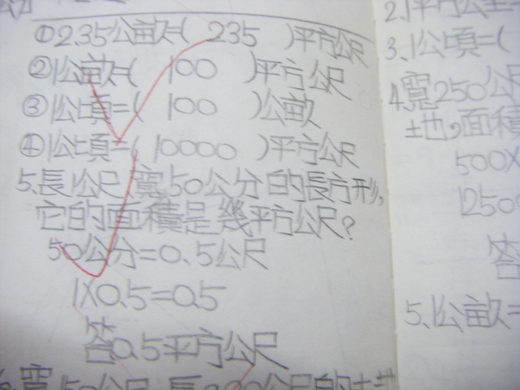 ①2.35公畝=( 235 )平方公尺
②1公畝=( 100 )平方公尺
③1公頃=( 100 )公畝
④1公頃=( 10000 )平方公尺
5.長1公尺,寬50公分的長方形,
它的面積是幾平方公尺?
50公分=0.5公尺
1X0.5=0.5
答0.5平方公尺
寬50公尺,長
3.1公頃=(
4.寬250公尺
地,面積
500X
1250
答
5.1公畝=